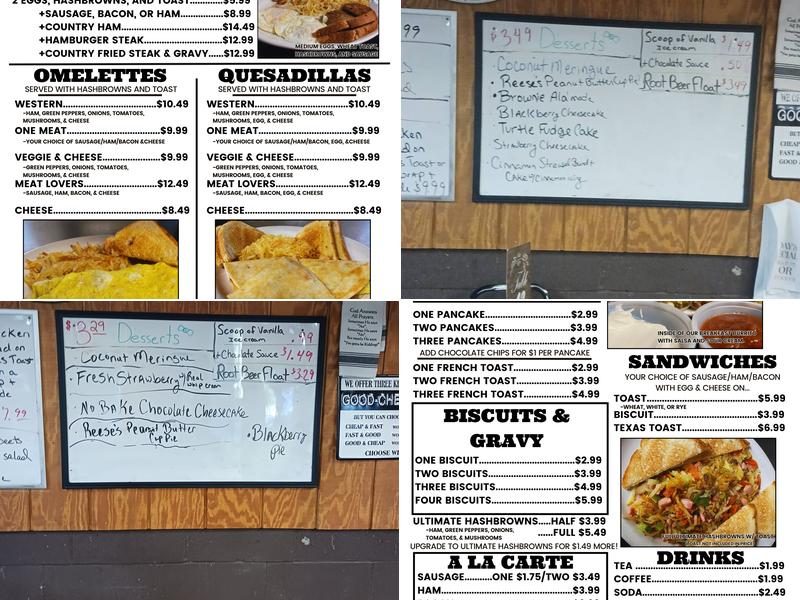 +SAUSAGE, BACON, OR HAM......$8.99
+COUNTRY HAM......$14.49
+HAMBURGER STEAK......$12.99
+COUNTRY FRIED STEAK & GRAVY......$12.99
MEDIUM EGGS, WHEAT TOAST,
HASHBROWNS, AND SAUSAGE
OMELETTES
SERVED WITH HASHBROWNS AND TOAST
WESTERN......$10.49
-HAM, GREEN PEPPERS, ONIONS, TOMATOES,
MUSHROOMS, & CHEESE
ONE MEAT......$9.99
-YOUR CHOICE OF SAUSAGE/HAM/BACON &CHEESE
VEGGIE & CHEESE......$9.99
-GREEN PEPPERS, ONIONS, TOMATOES,
MUSHROOMS, & CHEESE
MEAT LOVERS......$12.49
-SAUSAGE, HAM, BACON, & CHEESE
CHEESE......$8.49
QUESADILLAS
SERVED WITH HASHBROWNS AND TOAST
WESTERN......$10.49
-HAM, GREEN PEPPERS, ONIONS, TOMATOES,
MUSHROOMS, EGG, & CHEESE
ONE MEAT......$9.99
-YOUR CHOICE OF SAUSAGE/HAM/BACON, EGG, &CHEESE
VEGGIE & CHEESE......$9.99
-GREEN PEPPERS, ONIONS, TOMATOES,
MUSHROOMS, EGG, & CHEESE
MEAT LOVERS......$12.49
-SAUSAGE, HAM, BACON, EGG, & CHEESE
CHEESE......$8.49
$3.49 Desserts
Coconut Meringue
Reese's Peanut Butter Cup Pie
Brownie Ala'mode
Blackberry Cheesecake
Turtle Fudge Cake
Strawberry Cheesecake
Cinnamon Streusel Bundt
Cake
Scoop of Vanilla
Ice cream $1.49
+Chocolate Sauce .50
Root Beer Float $3.49
Toast or
$9.99
$3.29 Desserts
Coconut Meringue
Fresh Strawberry w/Real whip cream
No Bake Chocolate Cheesecake
Reese's Peanut Butter
Cup Pie
Blackberry
pie
Scoop of Vanilla
Ice cream .99
+Chocolate Sauce $1.49
Root Beer Float $3.29
God Answers
All Prayers
WE OFFER THREE
GOOD-CHE
BUT YOU CAN
CHEAP & FAST
FAST & GOOD
GOOD & CHEAP
CHOOSE
7.99
salad
ONE PANCAKE......$2.99
TWO PANCAKES......$3.99
THREE PANCAKES......$4.99
ADD CHOCOLATE CHIPS FOR $1 PER PANCAKE
ONE FRENCH TOAST......$2.99
TWO FRENCH TOAST......$3.99
THREE FRENCH TOAST......$4.99
BISCUITS &
GRAVY
ONE BISCUIT......$2.99
TWO BISCUITS......$3.99
THREE BISCUITS......$4.99
FOUR BISCUITS......$5.99
ULTIMATE HASHBROWNS.....HALF $3.99
-HAM, GREEN PEPPERS, ONIONS,
TOMATOES, & MUSHROOMS
......FULL $5.49
UPGRADE TO ULTIMATE HASHBROWNS FOR $1.49 MORE!
A LA CARTE
SAUSAGE.........ONE $1.75/TWO $3.49
HAM......$3.99
INSIDE OF OUR BREAKFAST BURRITO
WITH SALSA AND SOUR CREAM
SANDWICHES
YOUR CHOICE OF SAUSAGE/HAM/BACON
WITH EGG & CHEESE ON...
TOAST......$5.99
-WHEAT, WHITE, OR RYE
BISCUIT......$3.99
TEXAS TOAST......$6.99
FULL ULTIMATE HASHBROWNS W/ TOAST
TOAST NOT INCLUDED IN PRICE
DRINKS
TEA......$1.99
COFFEE......$1.99
SODA......$2.49